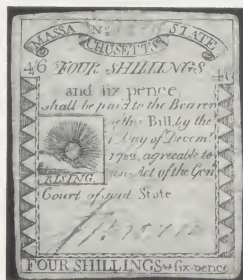 MASSA No STATE
CHUSETTS
4/6 FOUR SHILLINGS 4/6
and six pence
shall be paid to the Bearer
of this Bill, by the
Day of Decem.r
1782, agreeable to
an Act of the Gen.
RISING
Court of said State
FOUR SHILLINGS & six pence